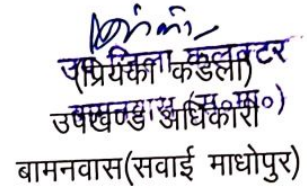 उप जिला कलक्टर
(प्रियंका कंडेला)
बामनवास (स. मा०)
उपखण्ड अधिकारी
बामनवास(सवाई माधोपुर)